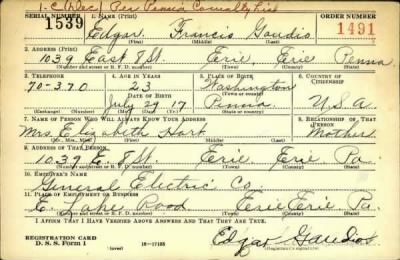 1-C (Dec) Per Pension Casualty List
SERIAL NUMBER 1. NAME (Print) ORDER NUMBER
1539 Edgar Francis Gaudio 1491
(First) (Middle) (Last)
2. ADDRESS (Print)
1039 East 7 St. Erie, Erie Penna.
(Number and street or R. F. D. number) (Town) (County) (State)
3. TELEPHONE 4. AGE IN YEARS 5. PLACE OF BIRTH 6. COUNTRY OF CITIZENSHIP
70-370 23 Washington
DATE OF BIRTH (Town or county)
July 29 17 Penna. U.S.A.
(Exchange) (Number) (Mo.) (Day) (Yr.) (State or country)
7. NAME OF PERSON WHO WILL ALWAYS KNOW YOUR ADDRESS 8. RELATIONSHIP OF THAT PERSON
Mrs. Elizabeth Hart Mother
(Mr., Mrs., Miss) (First) (Middle) (Last)
9. ADDRESS OF THAT PERSON
1039 E. 7 St. Erie, Erie, Pa.
(Number and street or R. F. D. number) (Town) (County) (State)
10. EMPLOYER'S NAME
General Electric Co.
11. PLACE OF EMPLOYMENT OR BUSINESS
E. Lake Road Erie Erie Pa.
(Number and street or R. F. D. number) (Town) (County) (State)
I AFFIRM THAT I HAVE VERIFIED ABOVE ANSWERS AND THAT THEY ARE TRUE.
REGISTRATION CARD
D. S. S. Form 1 (over) 16-17105 Edgar Gaudio
(Registrant's signature)